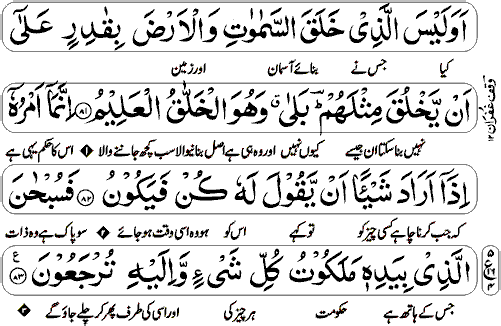 اَوَلَيْسَ الَّذِىْ خَلَقَ السَّمٰوٰتِ وَالْاَرْضَ بِقٰدِرٍ عَلٰٓى
کیا جس نے بنائے آسمان اور زمین
اَنْ يَّخْلُقَ مِثْلَهُمْ ؕ بَلٰى ۗ وَهُوَ الْخَلّٰقُ الْعَلِيْمُ ﴿۸۱﴾ اِنَّمَاۤ اَمْرُهٗۤ
نہیں بنا سکتا ان جیسے کیوں نہیں اور وہ ہی ہے اصل بنانیوالا سب کچھ جاننے والا ۱ اس کا حکم یہی ہے
اِذَاۤ اَرَادَ شَيْـًٔا اَنْ يَّقُوْلَ لَهٗ كُنْ فَيَكُوْنُ ﴿۸۲﴾ فَسُبْحٰنَ
کہ جب کرنا چاہے کسی چیز کو تو کہے اس کو ہو وہ اسی وقت ہو جائے ۲ سو پاک ہے وہ ذات
الَّذِىْ بِيَدِهٖ مَلَكُوْتُ كُلِّ شَىْءٍ وَّاِلَيْهِ تُرْجَعُوْنَ ﴿۸۳﴾ ع
جس کے ہاتھ ہے حکومت ہر چیز کی اور اسی کی طرف پھر کر چلے جاؤ گے ۳
وقف غفران